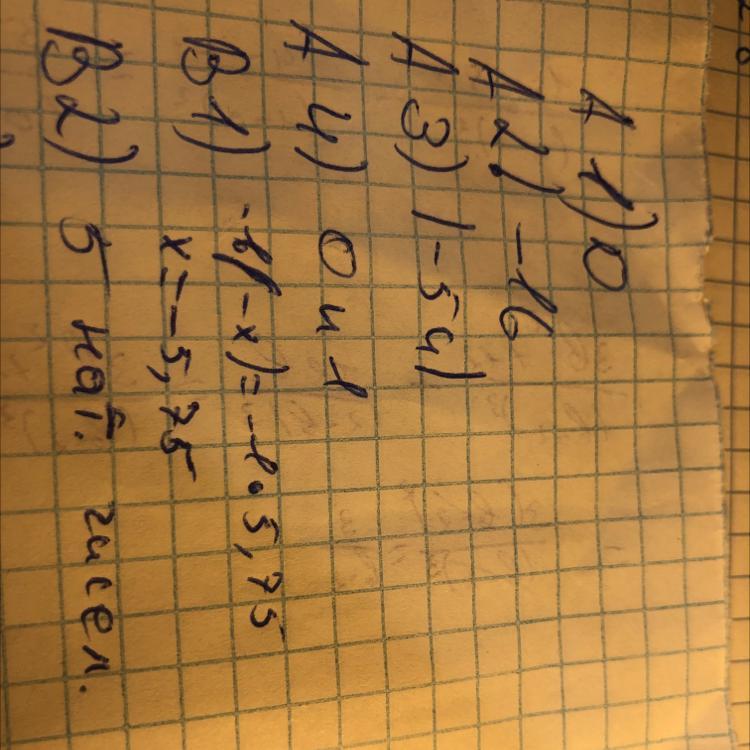 А 1) 0
А 2) -16
А 3) |-54|
А 4) 0 и 1
В 1) -1(-x) = -1 • 5,75
x = -5,75
В 2) 5 нат. чисел.